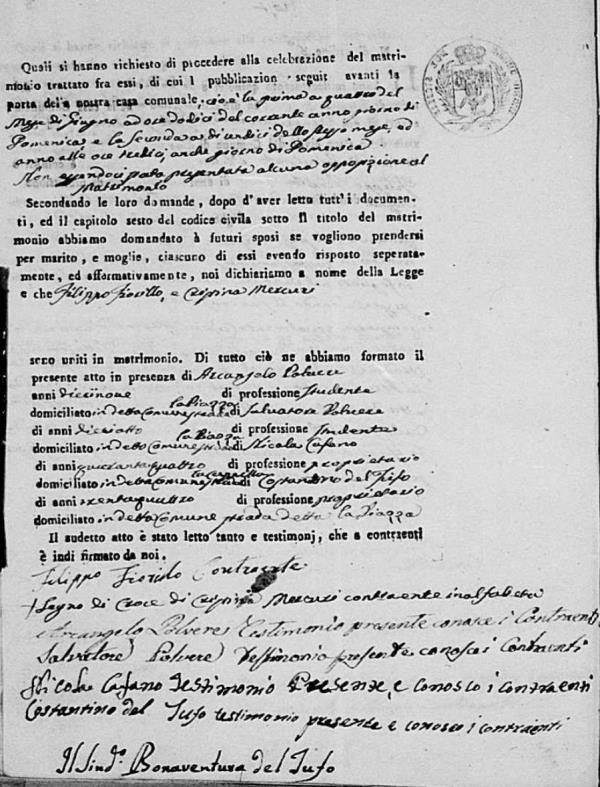 Quali si hanno richiesto di procedere alla celebrazione del matri-
monio trattato fra essi, di cui l pubblicazion seguit avanti la
porta del a nostra casa comunale, cioè la prima a quattro del
Mese di Giugno a ore dodici del corante anno giorno di
Domenica e la Seconda a di undici dello stesso mese, ed
anno alle ore tredici, anche giorno di Domenica.
Non essendoci stata presentata alcuna opposizione al
Matrimonio
Secondando le loro domande, dopo d'aver letto tutt'i documen-
ti, ed il capitolo sesto del codice civila sotto il titolo del matri-
monio abbiamo domandato à futuri sposi se vogliono prendersi
per marito, e moglie, ciascuno di essi evendo risposto seperata-
mente, ed afformativamente, noi dichiariamo a nome della Legge
e che Filippo Fiorillo, e Crispina Mercuri
seno uniti in matrimonio. Di tutto ciò ne abbiamo formato il
presente atto in presenza di Arcangelo Polvere
anni diecinove di professione Studente
domiciliato in detta Comune strada la Piazza di Salvatore Polvere
di anni dieciotto di professione Studente
domiciliato in detto Comune strada la Piazza di Nicola Cafano
di anni quaranta quattro di professione proprietario
domiciliato in detta Comune strada di Costantino del Tufo
di anni trenta quattro di professione proprietario
domiciliato in detta Comune strada detta la Piazza
Il sudetto atto è stato letto tanto e testimonj, che a contraenti
è indi firmato da noi.
Filippo Fiorillo Contraente
+ Segno di Croce di Crispina Mercuri contraente inalfabeta
Arcangelo Polvere Testimonio presente conosce i Contraenti
Salvatore Polvere Testimonio presente conosce i Contraenti
Nicola Cafano Testimonio Presente, e conosco i contraenti
Costantino del Tufo testimonio presente e conosco i contraenti
Il Sind.º Bonaventura del Tufo